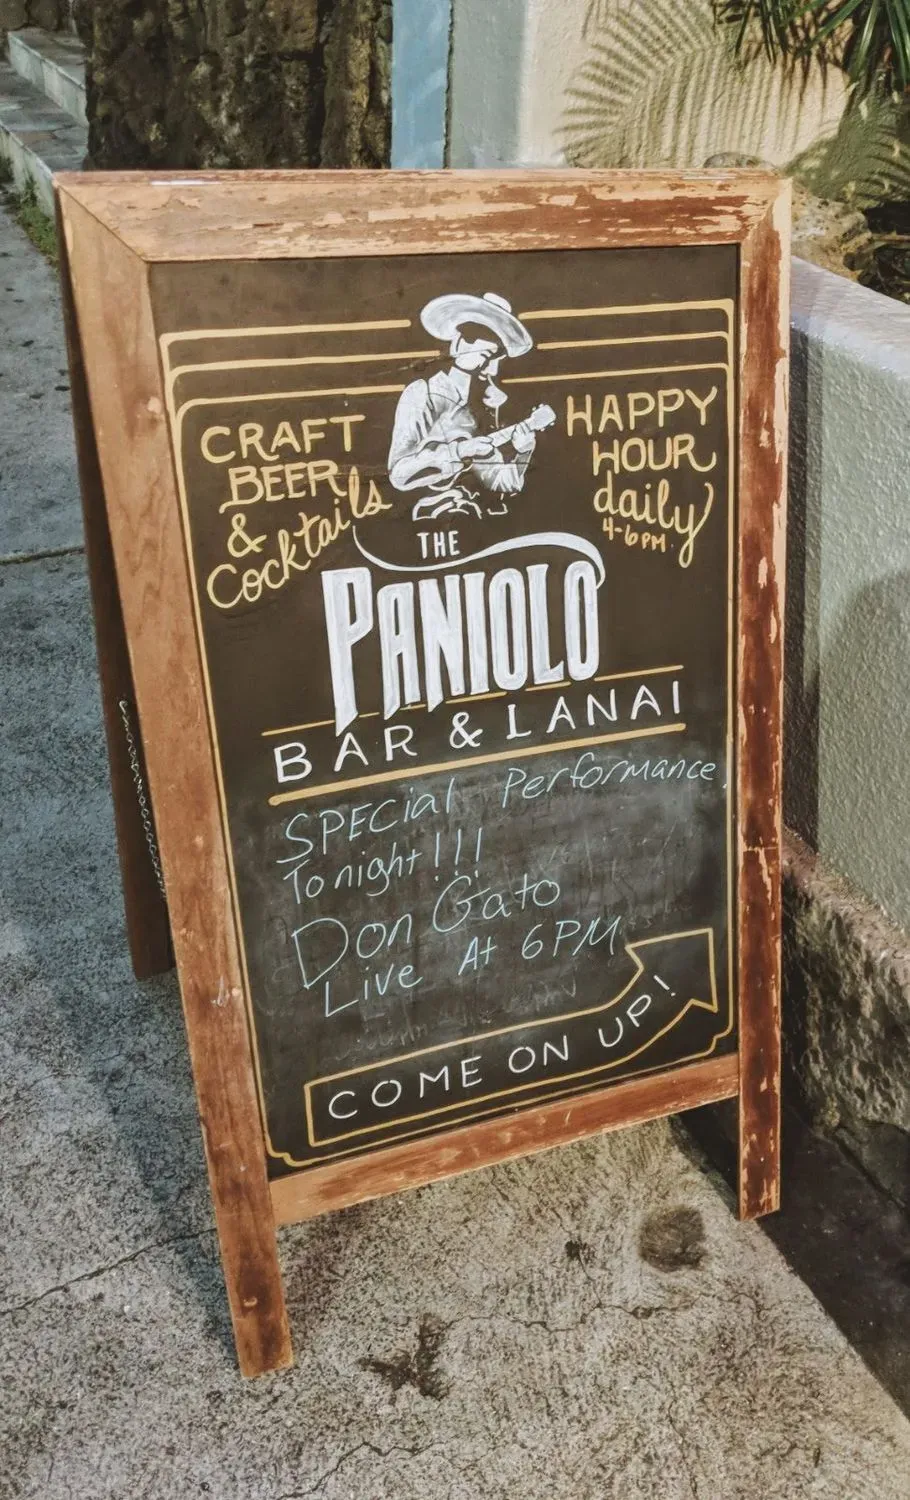 CRAFT
BEER
&
Cocktails
HAPPY
HOUR
daily
4-6PM.
THE
PANIOLO
BAR & LANAI
SPECial Performance
Tonight!!!
Don Gato
Live At 6PM
COME ON UP!